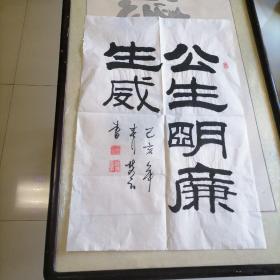 公生明廉
生威
己亥年
书